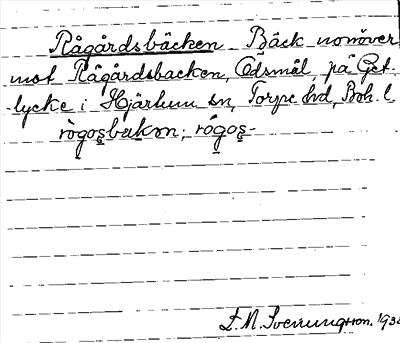 Rågårdsbäcken Bäck norröver
mot Rågårdsbacken, Ödsmål, på Get-
lycke i Hjärtum sn, Torpe hd, Boh. l.
rògo̱ṣbäkən; rógo̱ṣ-
E. N. Svenungsson. 193